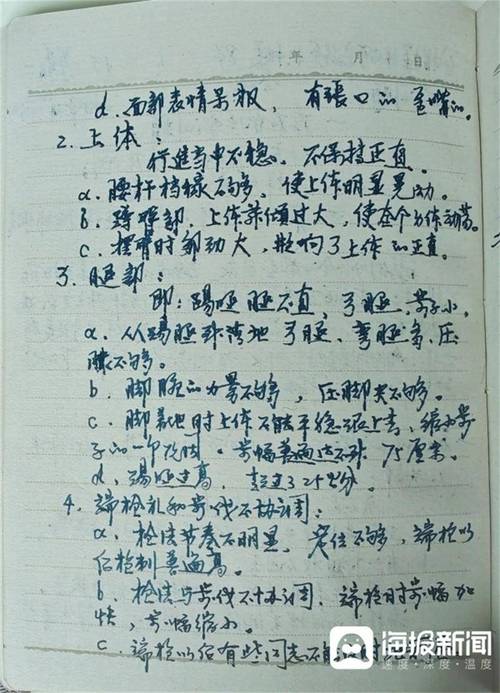 年 月 日
d. 面部表情呆板, 有张口的
2. 上体:
行进当中不稳。不保持正直。
a. 腰杆挡缘不够, 使上体明显晃动。
上体前倾过大, 使整个身体动荡。
c. 摆臂时 动大, 影响了上体的正直。
3. 腿部:
即: 踢腿腿不直, 弓腿, 步子小,
a. 从踢腿到落地弓腿、弯腿多, 压
不够。
b. 脚腕的力量不够, 压脚尖不够。
c. 脚着地时上体不能平稳 上去, 缩小步
子的一个 。步幅普遍达不到75厘米。
d. 踢腿过高, 超过了25公分。
4. 端枪礼和步伐不协调:
a. 枪法节奏不明显, 定位不够, 端枪以
后枪刺普遍高。
b. 枪法与步伐不协调, 端枪时步幅加
快, 步幅缩小。
c. 端枪以后有些同志不能
海报新闻
速度·深度·温度